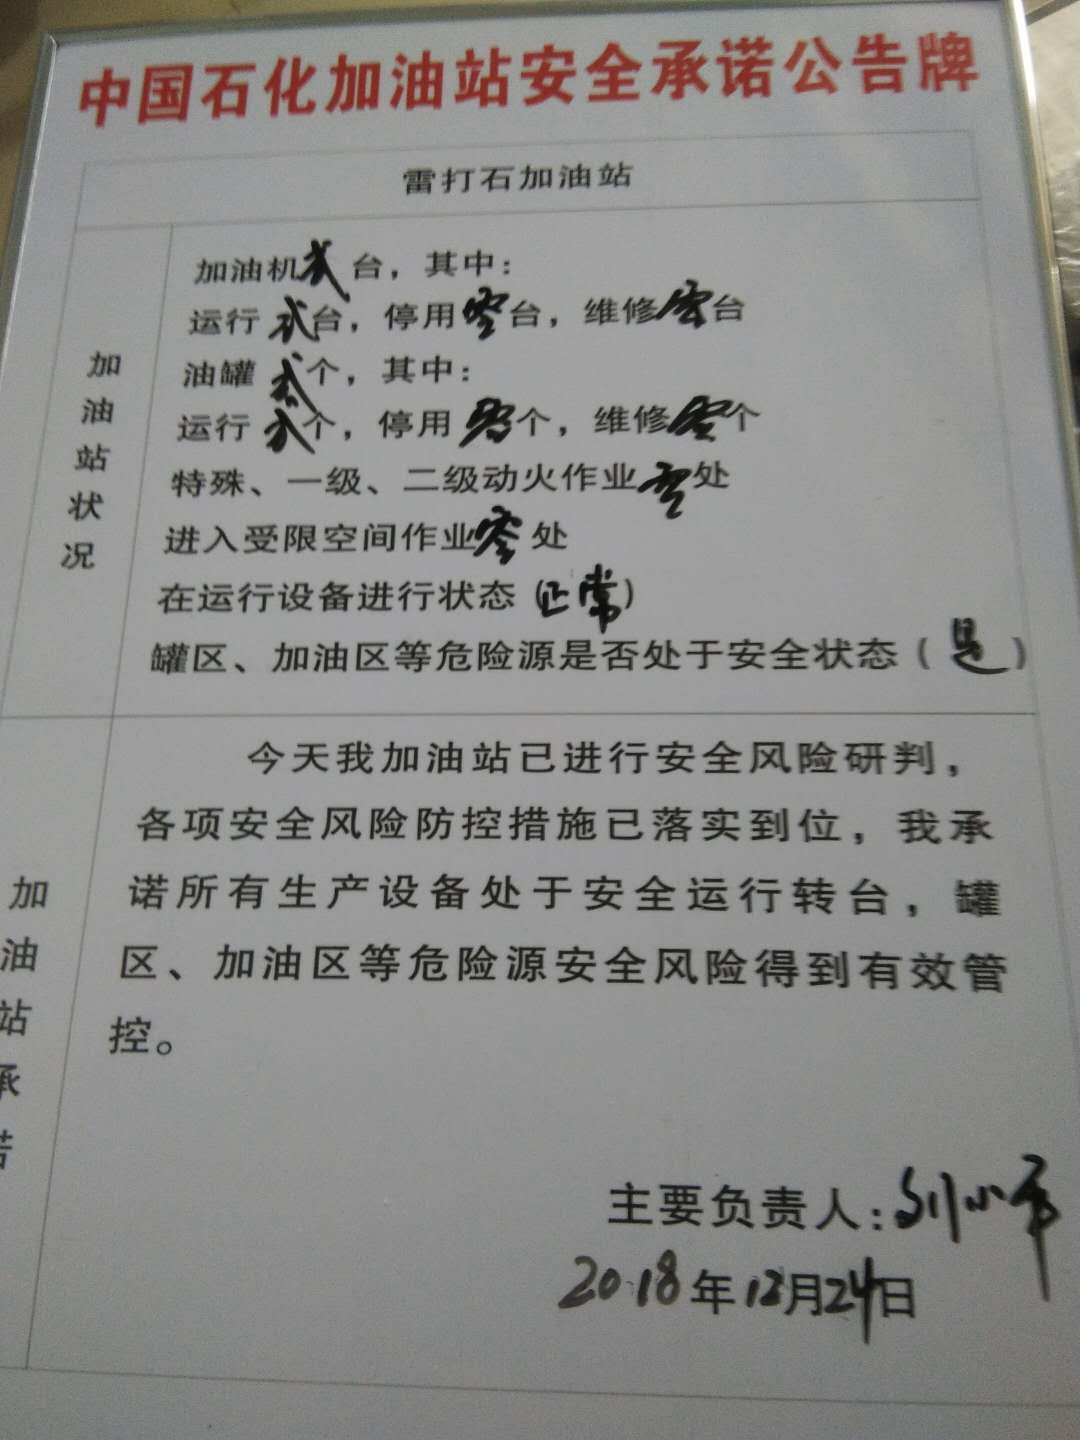 中国石化加油站安全承诺公告牌
雷打石加油站
加油站状况
加油机贰台，其中：
运行贰台，停用零台，维修零台
油罐贰个，其中：
运行贰个，停用零个，维修零个
特殊、一级、二级动火作业零处
进入受限空间作业零处
在运行设备进行状态（正常）
罐区、加油区等危险源是否处于安全状态（是）
加油站承诺
今天我加油站已进行安全风险研判，
各项安全风险防控措施已落实到位，我承
诺所有生产设备处于安全运行转台，罐
区、加油区等危险源安全风险得到有效管
控。
主要负责人：刘小军
2018年12月24日